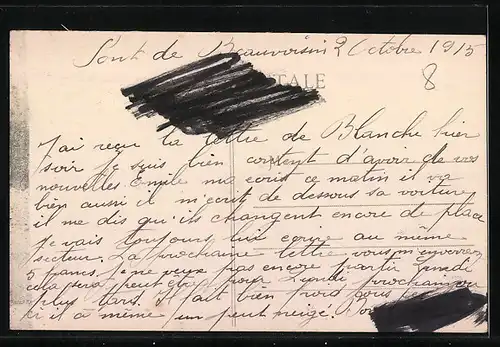 Pont de Beauvoisin 2 Octobre 1915
8
TALE
J'ai reçu la lettre de Blanche hier
soir je suis bien content d'avoir de vos
nouvelles Emile ma ecrit ce matin il va
bien aussi il m'ecrit de dessous sa voiture
il me dis qu'ils changent encore de place
je vais toujours lui ecrire au même
secteur. La prochaine lettre vous m'enverrez
5 francs. Je ne veux pas encore partir Lundi
cela sera peut être pour Lundi prochain ou
plus tard. Il fait bien froid
ici il a même un peut neigé.